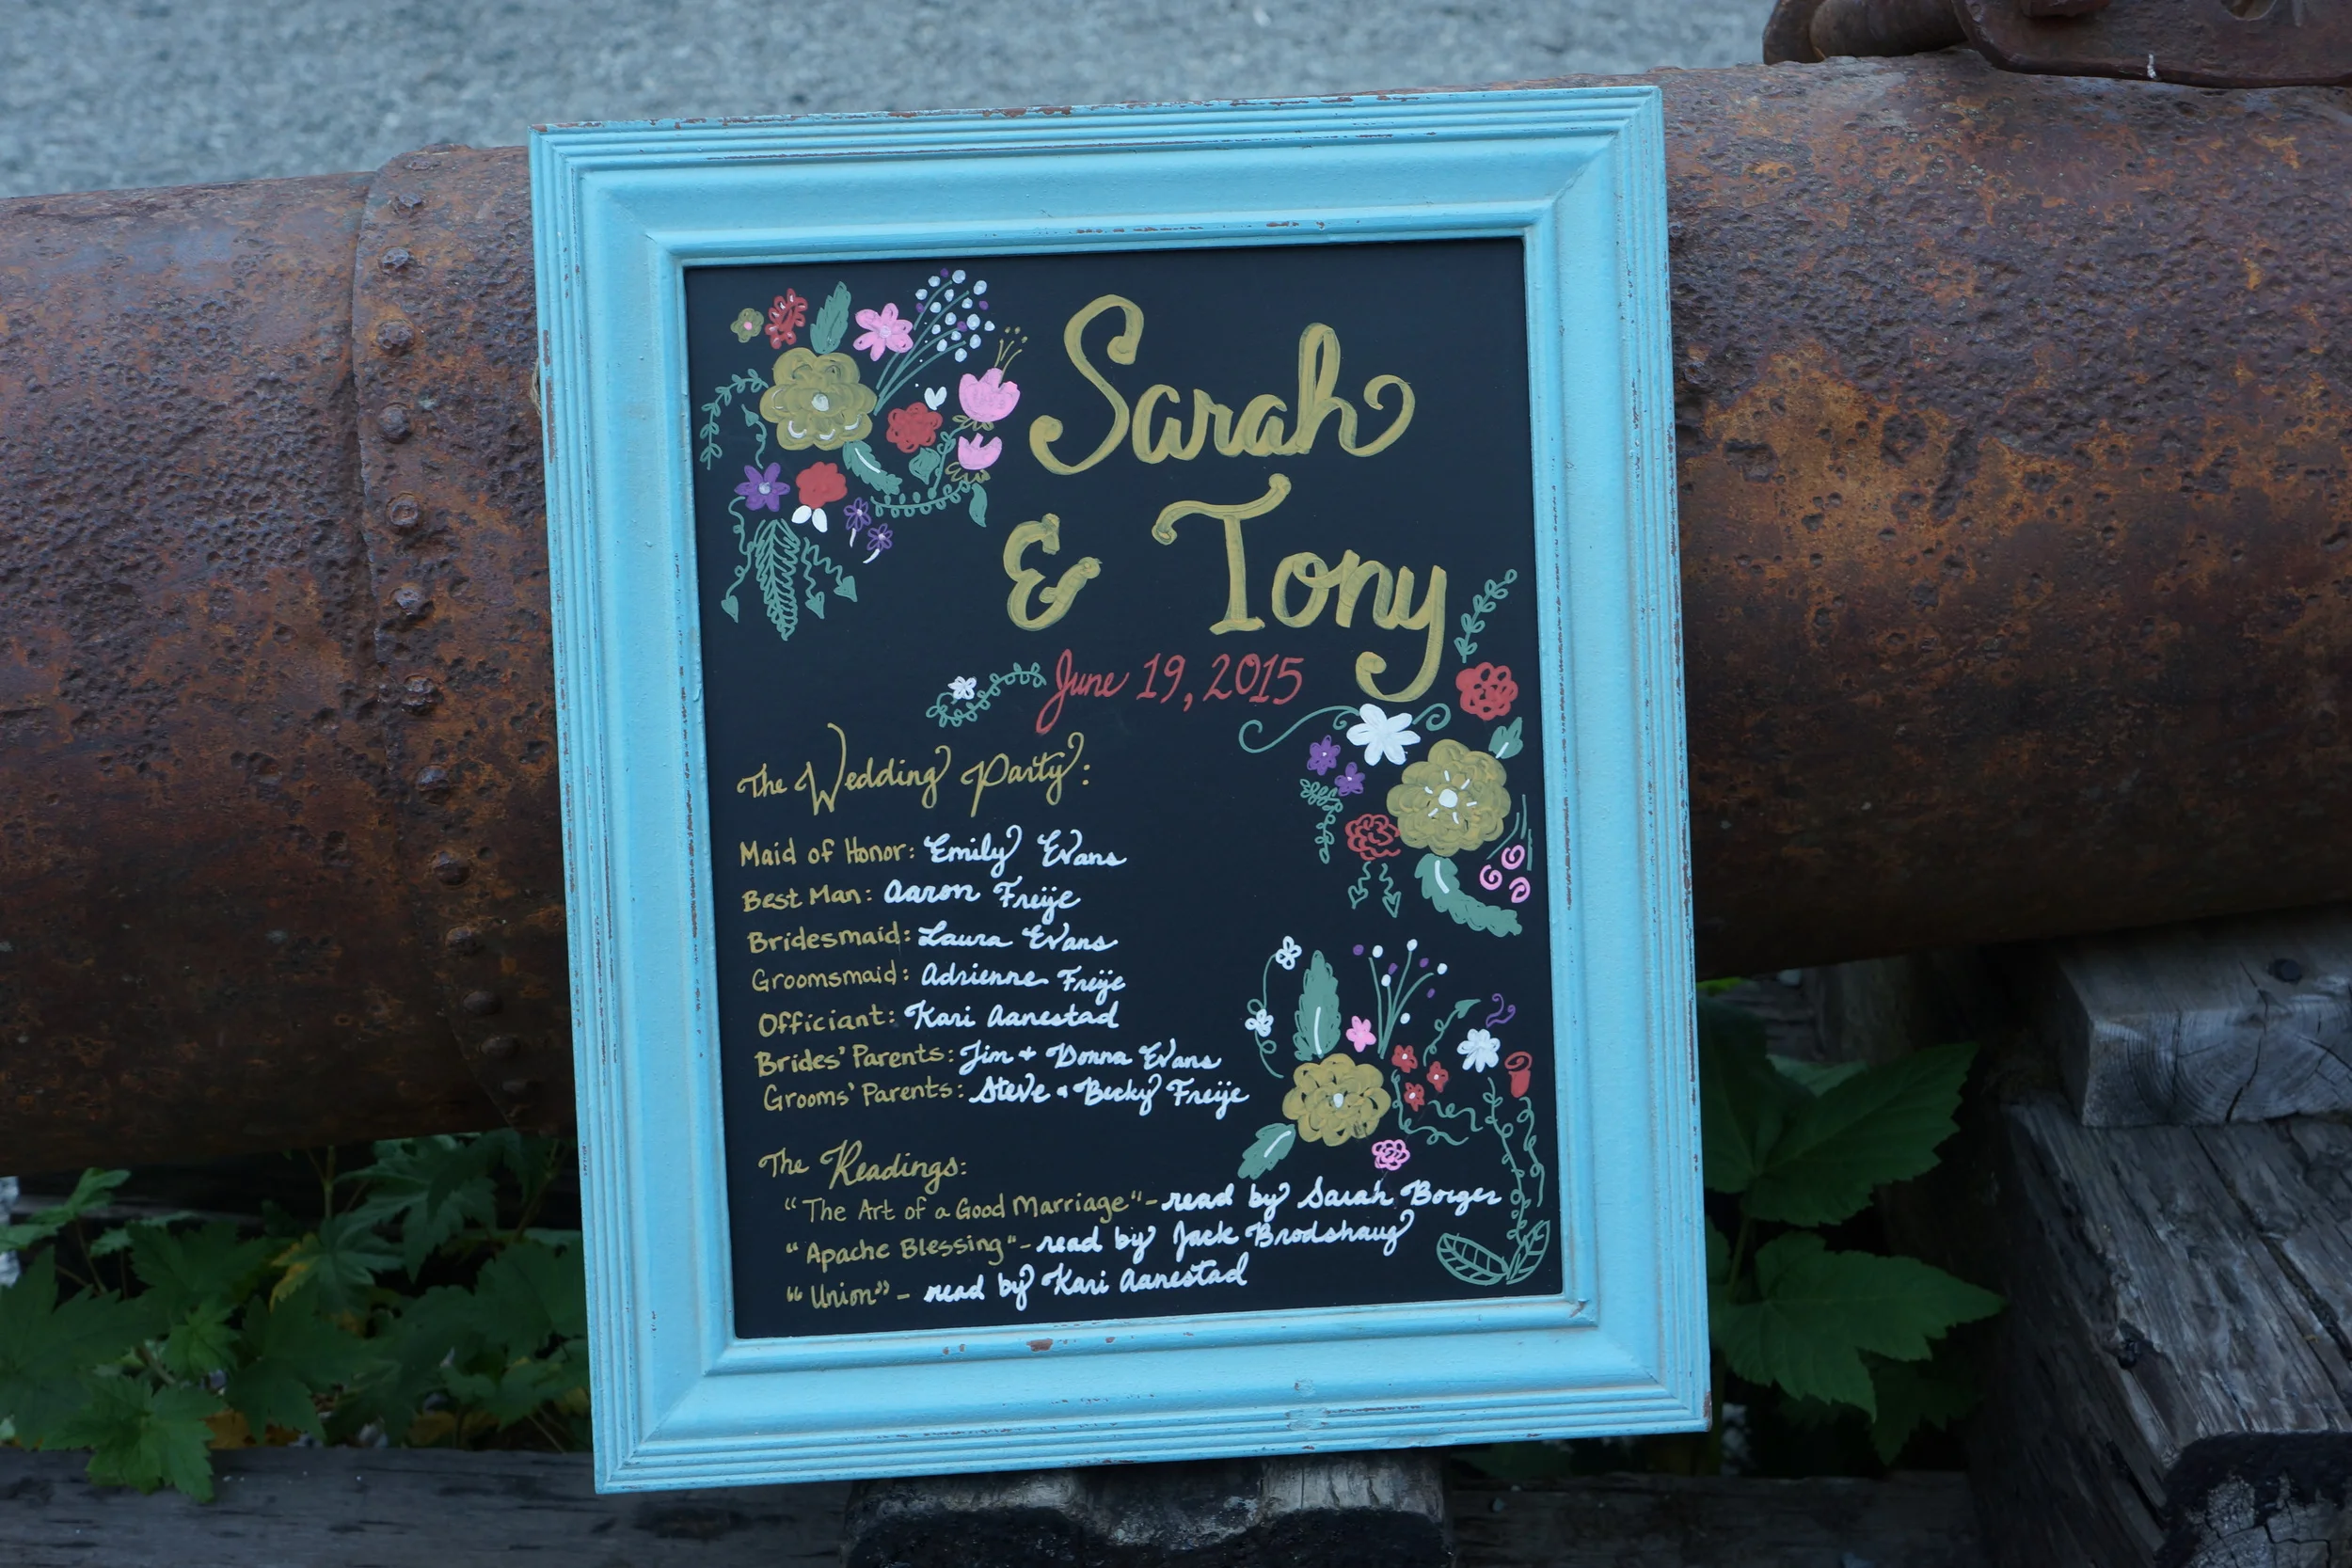 Sarah
& Tony
June 19, 2015
The Wedding Party:
Maid of Honor: Emily Evans
Best Man: Aaron Freije
Bridesmaid: Laura Evans
Groomsmaid: Adrienne Freije
Officiant: Kari Aanestad
Brides' Parents: Jim + Donna Evans
Grooms' Parents: Steve + Becky Freije
The Readings:
"The Art of a Good Marriage" - read by Sarah Borger
"Apache Blessing" - read by Jack Brodshaug
"Union" - read by Kari Aanestad